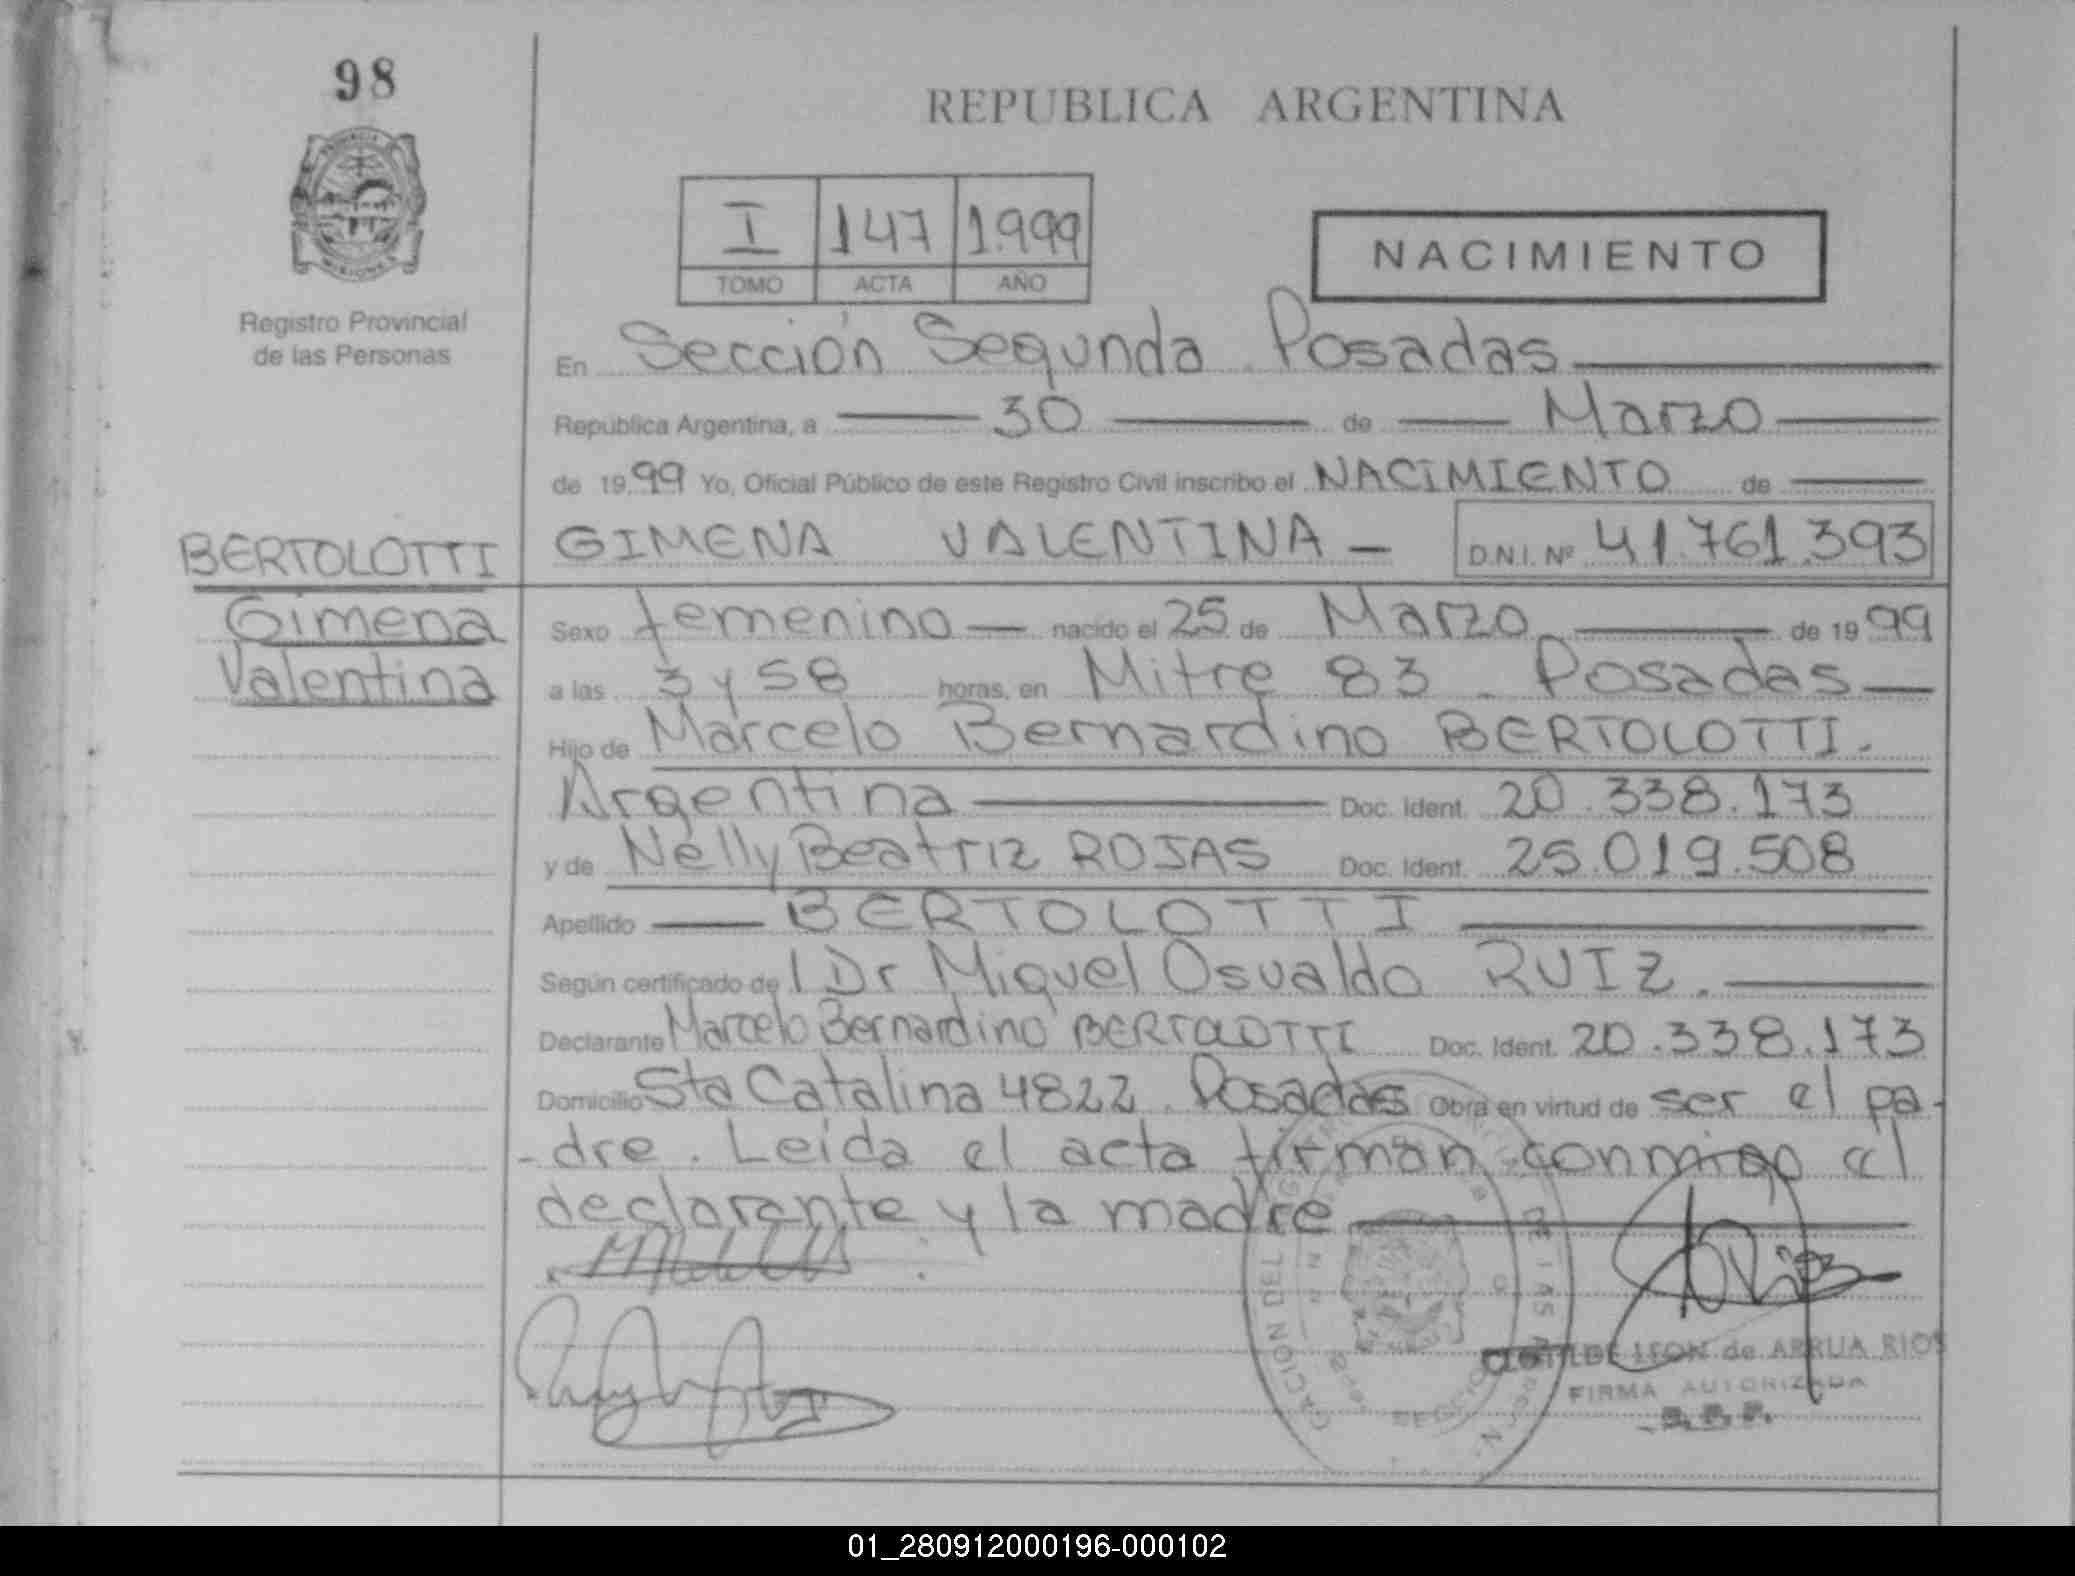 98
REPUBLICA ARGENTINA
PROVINCIA
MISIONES
Registro Provincial
de las Personas
I 147 1.999
TOMO ACTA AÑO
NACIMIENTO
En Sección Segunda. Posadas
República Argentina, a 30 de Marzo
de 19 99 Yo, Oficial Público de este Registro Civil inscribo el NACIMIENTO de
BERTOLOTTI
Gimena
Valentina
GIMENA VALENTINA - D.N.I. Nº 41.761.393
Sexo femenino nacido el 25 de Marzo de 19 99
a las 3 y 58 horas, en Mitre 83. Posadas
Hijo de Marcelo Bernardino BERTOLOTTI.
Argentina Doc. Ident. 20.338.173
y de Nelly Beatriz ROJAS Doc. Ident. 25.019.508
Apellido BERTOLOTTI
Según certificado de l Dr Miguel Osvaldo RUIZ.
Declarante Marcelo Bernardino BERTOLOTTI Doc. Ident. 20.338.173
Domicilio Sta Catalina 4822. Posadas Obra en virtud de ser el pa-
-dre. Leida el acta firman conmigo el
declarante y la madre
CLOTILDE LEON de ARRUA RIOS
FIRMA AUTORIZADA
01_280912000196-000102